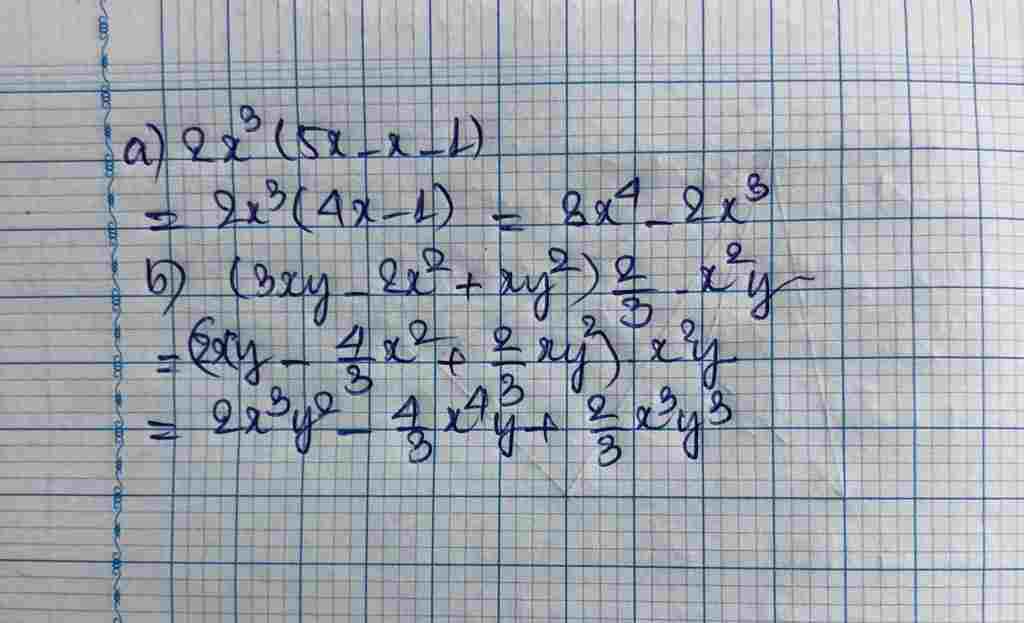 a) 2x³(5x-x-1)
= 2x³(4x-1) = 8x⁴-2x³
b) (3xy-2x²+xy²) 2/3 x²y
= (2xy - 4/3 x² + 2/3 xy²) x²y
= 2x³y² - 4/3 x⁴y + 2/3 x³y³